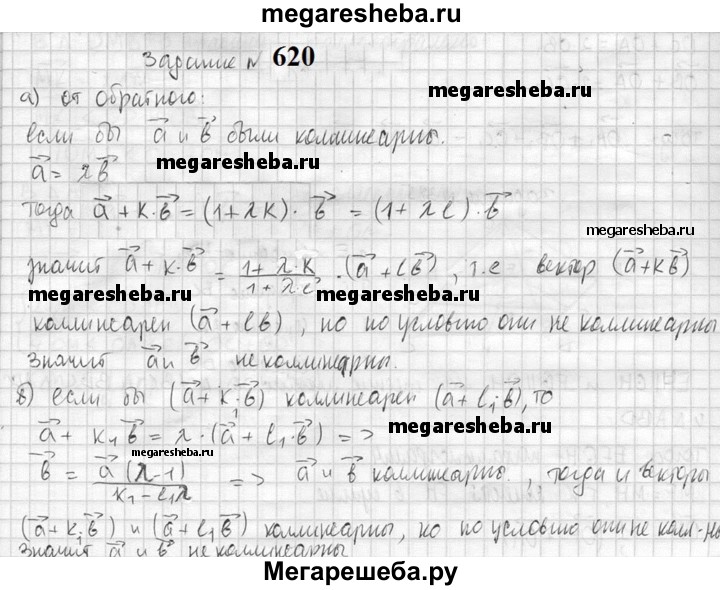 megaresheba.ru
Задание № 620
а) от обратного:
если бы a⃗ и b⃗ были коллинеарны.
a⃗ = λb⃗
megaresheba.ru
тогда a⃗ + k·b⃗ = (1+λk)· b⃗ = (1+λl)·b⃗
megaresheba.ru
значит a⃗ + k·b⃗ = (1+λ·k)/(1+λ·l) ·(a⃗ + lb⃗), т.е вектор (a⃗+kb⃗)
megaresheba.ru megaresheba.ru
коллинеарен (a⃗ + lb), но по условию они не коллинеарны
значит a⃗ и b⃗ не коллинеарны.
б) если бы (a⃗ + k₁·b⃗) коллинеарен (a⃗ + l₁·b⃗), то
megaresheba.ru
a⃗ + k₁b⃗ = λ·(a⃗ + l₁·b⃗) =>
megaresheba.ru
b⃗ = a⃗(λ-1)/(k₁-l₁λ) => a⃗ и b⃗ коллинеарны., тогда и векторы
(a⃗+k₁b⃗) и (a⃗+l₁b⃗) коллинеарны, но по условию они не колл-ны
значит a⃗ и b⃗ не коллинеарны
Мегарешеба.ру